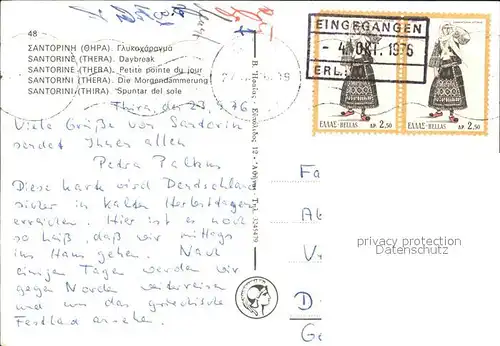 48
ΣΑΝΤΟΡΙΝΗ (ΘΗΡΑ) Γλυκοχάραγμα
SANTORINE (THERA) Daybreak
SANTORINE (THEBA) Petite pointe du jour
SANTORINI (THERA) Die Morgendämmerung
SANTORINI (THIRA) Spuntar del sole
Thira, den 23.9.76
Viele Grüße von Santorin
sendet Ihnen allen
Petra
Diese Karte wird Deutschland
sicher in kalten Herbsttagen
erreichen. Hier ist es noch
so heiß, daß wir mittags
ins Haus gehen. Nach
einigen Tagen werden wir
gegen Norden weiterreisen
und uns das griechische
Festland ansehen.
12 - Αθήναι - Τηλ. 3245479
EINGEGANGEN
- 4. OKT. 1976
ERL.:
ΕΛΛΑΣ-HELLAS
ΔΡ. 2,50
ΕΛΛΑΣ-HELLAS
ΔΡ. 2,50
Fa
privacy protection
watermarks
D